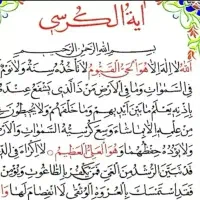 آية الكرسي
بسم الله الرحمن الرحيم
الله لا اله الا هو الحي القيوم لا تأخذه سنة ولا نوم
في السموات وما في الارض من ذا الذي يشفع عنده
بإذنه يعلم ما بين أيديهم وما خلفهم ولا يحيطون
من علمه الا بما شاء وسع كرسيه السموات والارض
ولا يؤده حفظهما وهو العلي العظيم لا اكراه في
قد تبين الرشد من الغي فمن يكفر بالطاغوت ويؤمن
فقد استمسك بالعروة الوثقى لا انفصام لها